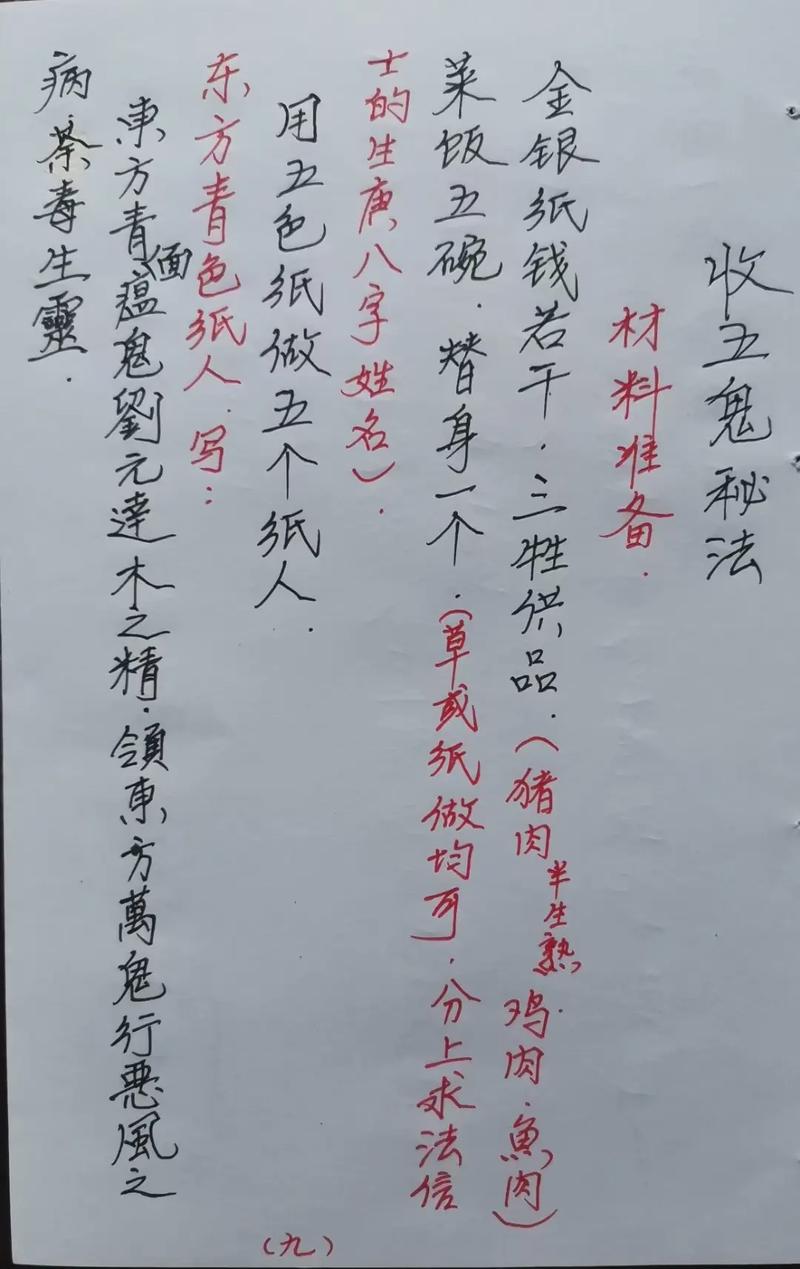 收五鬼秘法
材料准备.
金银纸钱若干.三牲供品.(猪肉半生熟鸡肉.魚肉)
菜饭五碗.替身一个.(草或纸做均可.分上求法信
士的生庚八字姓名).
用五色纸做五个纸人.
东方青色纸人.写:
東方青面瘟鬼劉元達木之精.领東方萬鬼行惡風之
病荼毒生靈.
(九)